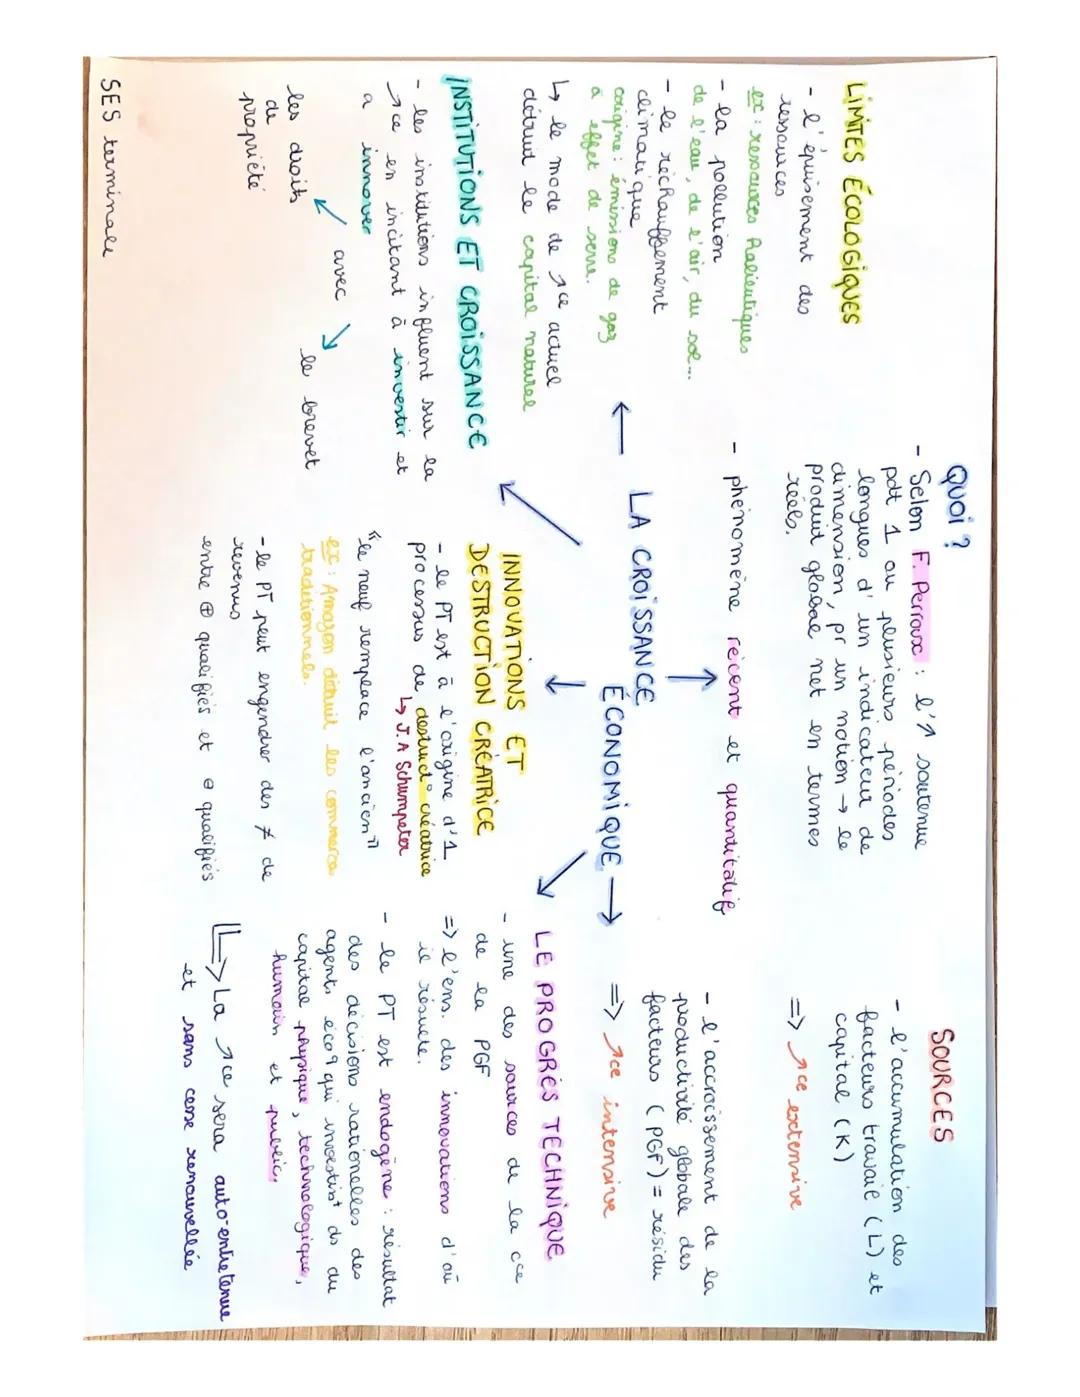 QUOI ?
- Selon F. Perroux : l'↗ soutenue
pdt 1 ou plusieurs périodes
longues d'un indicateur de
dimension, pr un nation → le
produit global net en termes
réels.
- phénomène récent et quantitatif
LA CROISSANCE
ÉCONOMIQUE
SOURCES
- l'accumulation des
facteurs travail (L) et
capital (K)
=> ↗ce extensive
- l'accroissement de la
productivité globale des
facteurs (PGF) = résidu
=> ↗ce intensive
LE PROGRÈS TECHNIQUE
- une des sources de la cce
de la PGF
=> l'ens. des innovations d'où
il résulte.
- le PT est endogène : résultat
des décisions rationelles des
agents éco9 qui investist ds du
capital physique, technologique,
humain et public,
=> La ↗ce sera auto-entretenue
et sans cesse renouvellée
INNOVATIONS ET
DESTRUCTION CRÉATRICE
- le PT est à l'origine d'1
processus de destruct° créatrice
↳ J.A Schumpeter
"le neuf remplace l'ancien"
ex : Amazon détruit les commerce
traditionnels.
- le PT peut engendrer des ≠ de
revenus
entre ⊕ qualifiés et ⊖ qualifiés
LIMITES ÉCOLOGIQUES
- l'épuisement des
ressources
ex : ressources Halieutiques
- la pollution
de l'eau, de l'air, du sol...
- le réchauffement
climatique
origine : émissions de gaz
à effet de serre.
↳ le mode de ↗ce actuel
détruit le capital naturel
INSTITUTIONS ET CROISSANCE
- les institutions influent sur la
↗ce en incitant à investir et
a innover
avec
les droits
de
propriété
le brevet
SES terminale